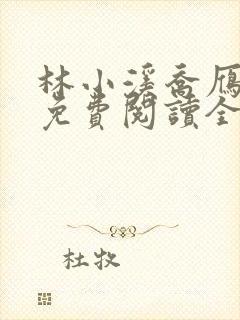 林小溪喬雁
免費閱讀全
杜牧